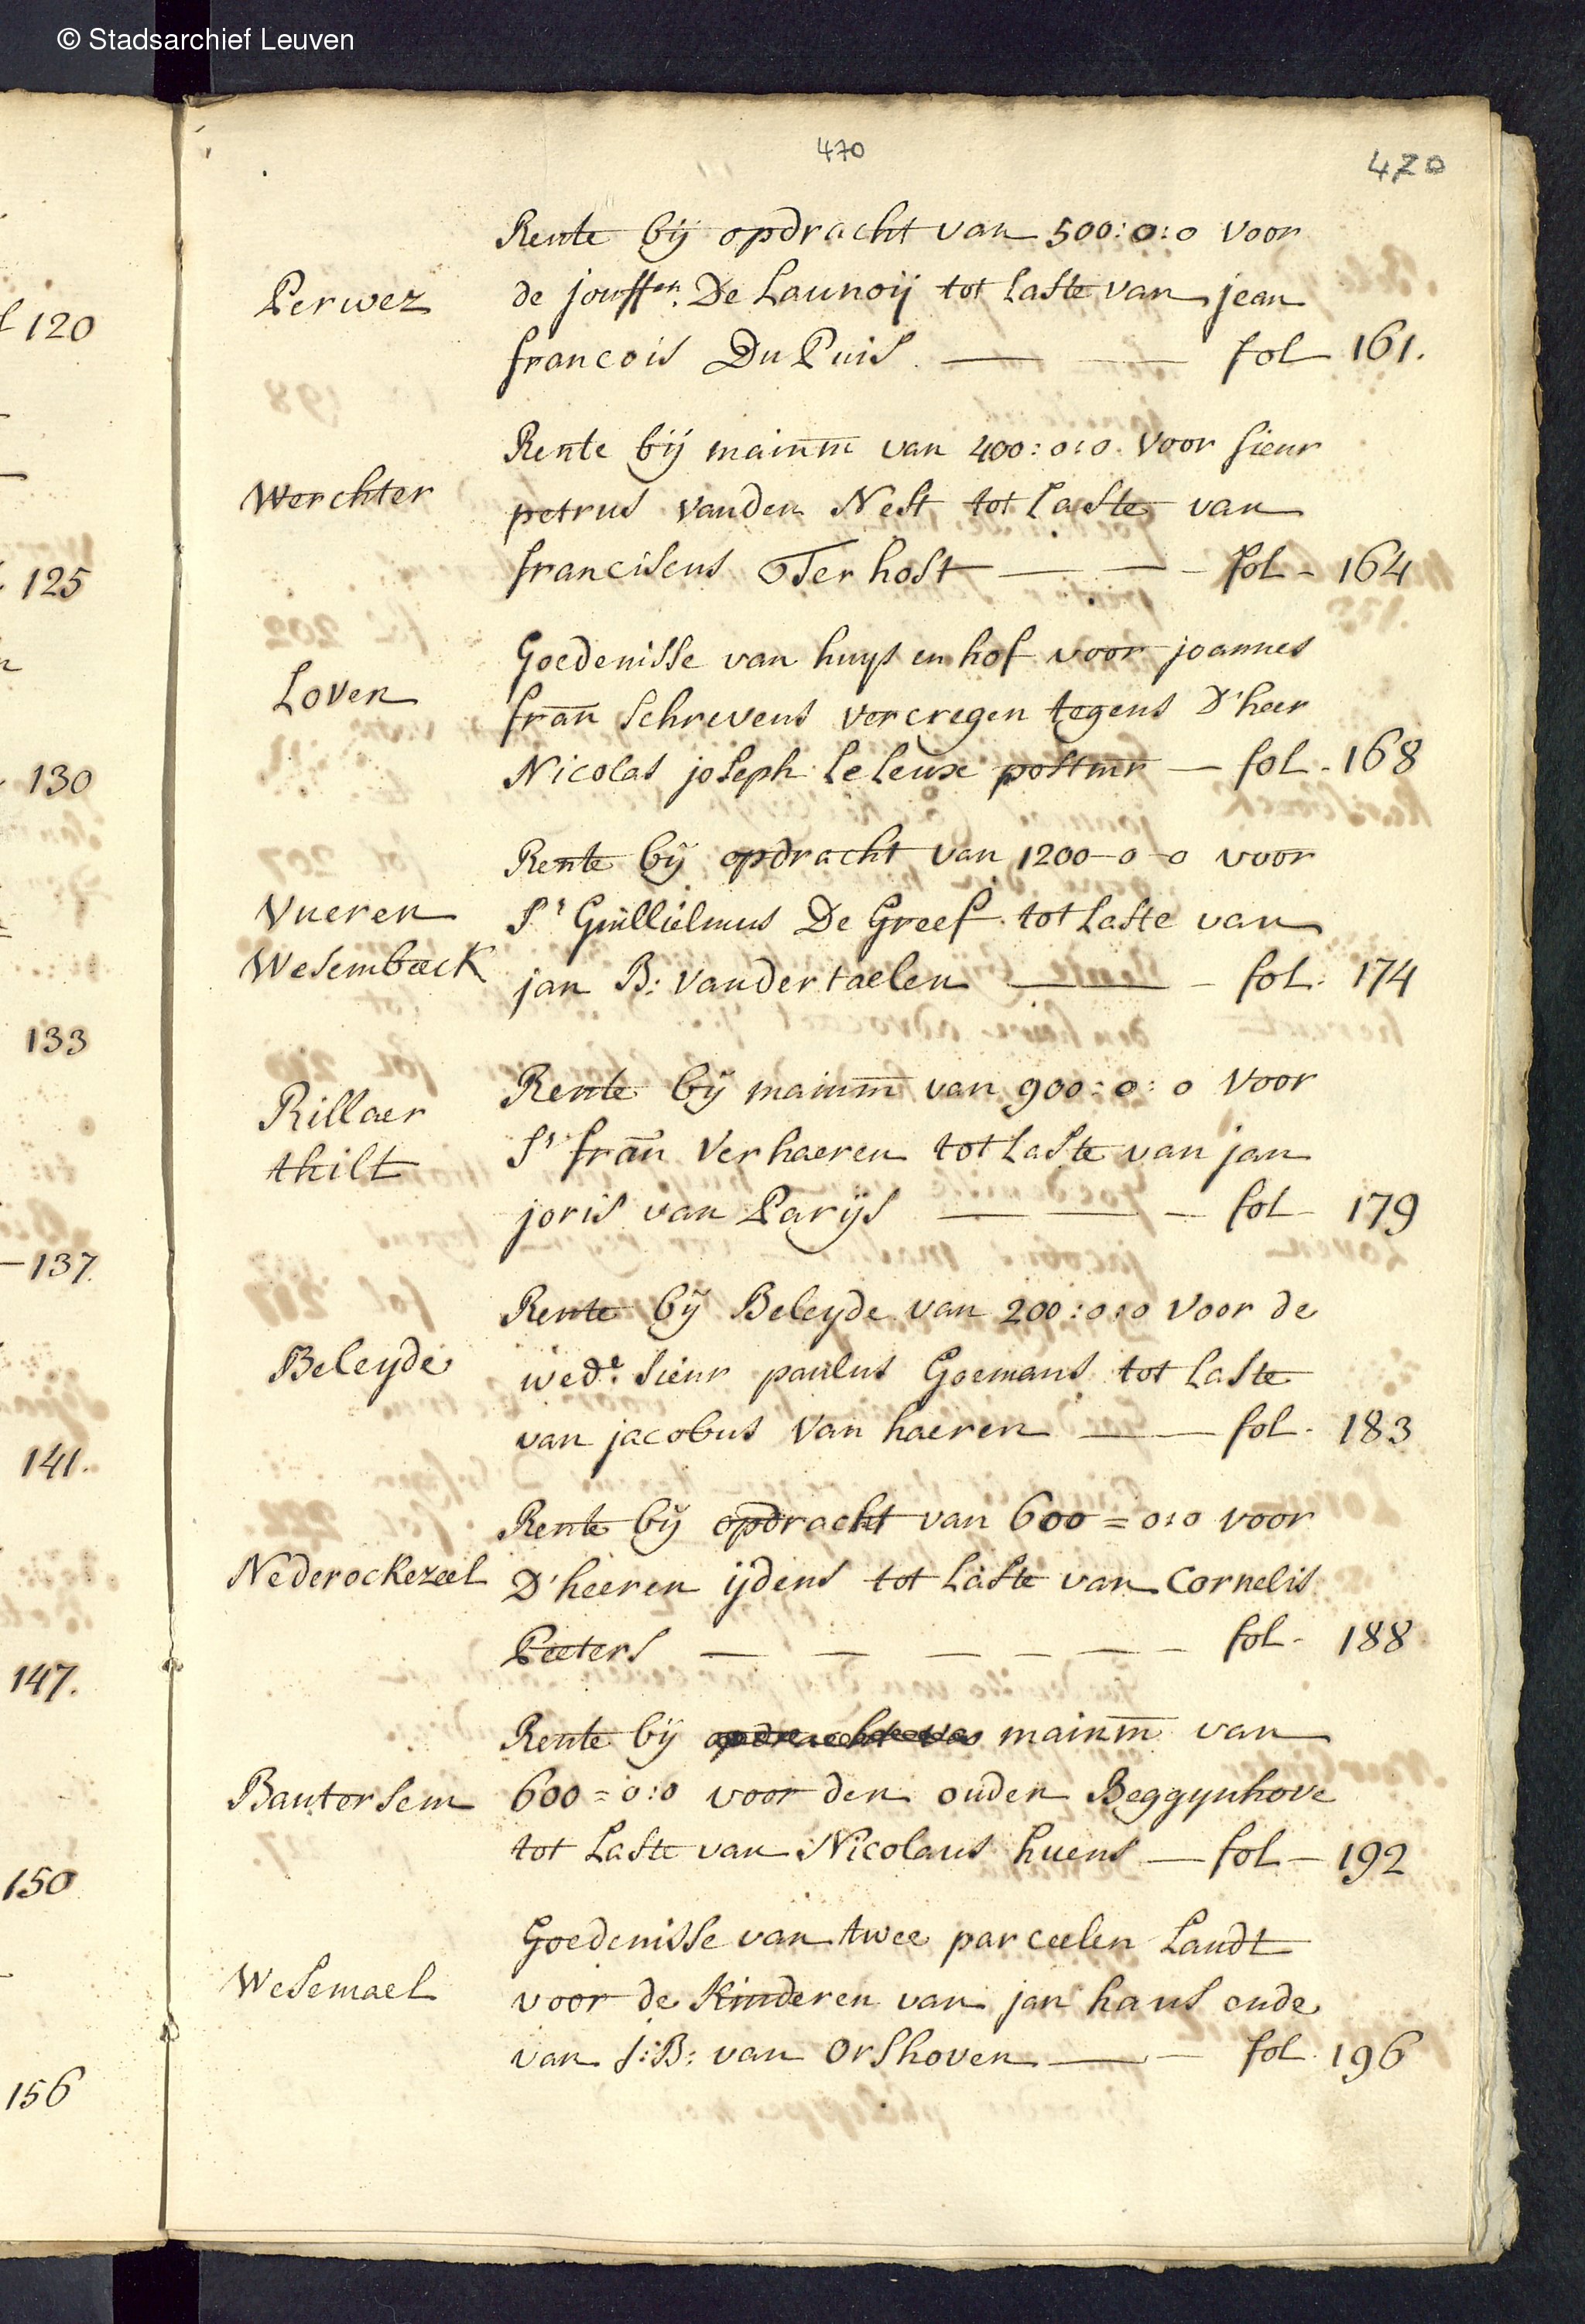 © Stadsarchief Leuven
470
470
Rente bij opdracht van 500:0:0 voor
Perwez de jouffen. De Launoij tot laste van jean
francois Du Puis fol 161.
Rente bij mainm van 400:0:0. voor sieur
Werchter petrus vanden Nest tot laste van
franciscus Terhost fol - 164
Goedenisse van huys en hof voor joannes
Loven fran schrevens vercregen tegens D'heer
Nicolas joseph Leleux postmr fol. 168
Rente bij opdracht van 1200-0-0 voor
Vueren Sr Guillielmus De Greef tot laste van
Wesembaeck jan B: vandertaelen fol: 174
Rente bij mainm van 900:0:0 voor
Rillaer Sr fran verhaeren tot laste van jan
thilt joris van Parijs fol - 179
Rente bij Beleyde van 200:0:0 voor de
Beleyde wede. sieur paulus Goemans tot laste
van jacobus van haeren fol. 183
Rente bij opdracht van 600=0:0 voor
Nederockezeel D'heeren ijdens tot laste van Cornelis
Peeters fol- 188
Rente bij mainm van
Bautersem 600=0:0 voor den ouden Beggynhove
tot laste van Nicolaus huens fol - 192
Goedenisse van twee parceelen Landt
Wesemael voor de Kinderen van jan hans ende
van J:B: van Orshoven fol. 196
120
125
130
133
137.
141.
147.
150
156